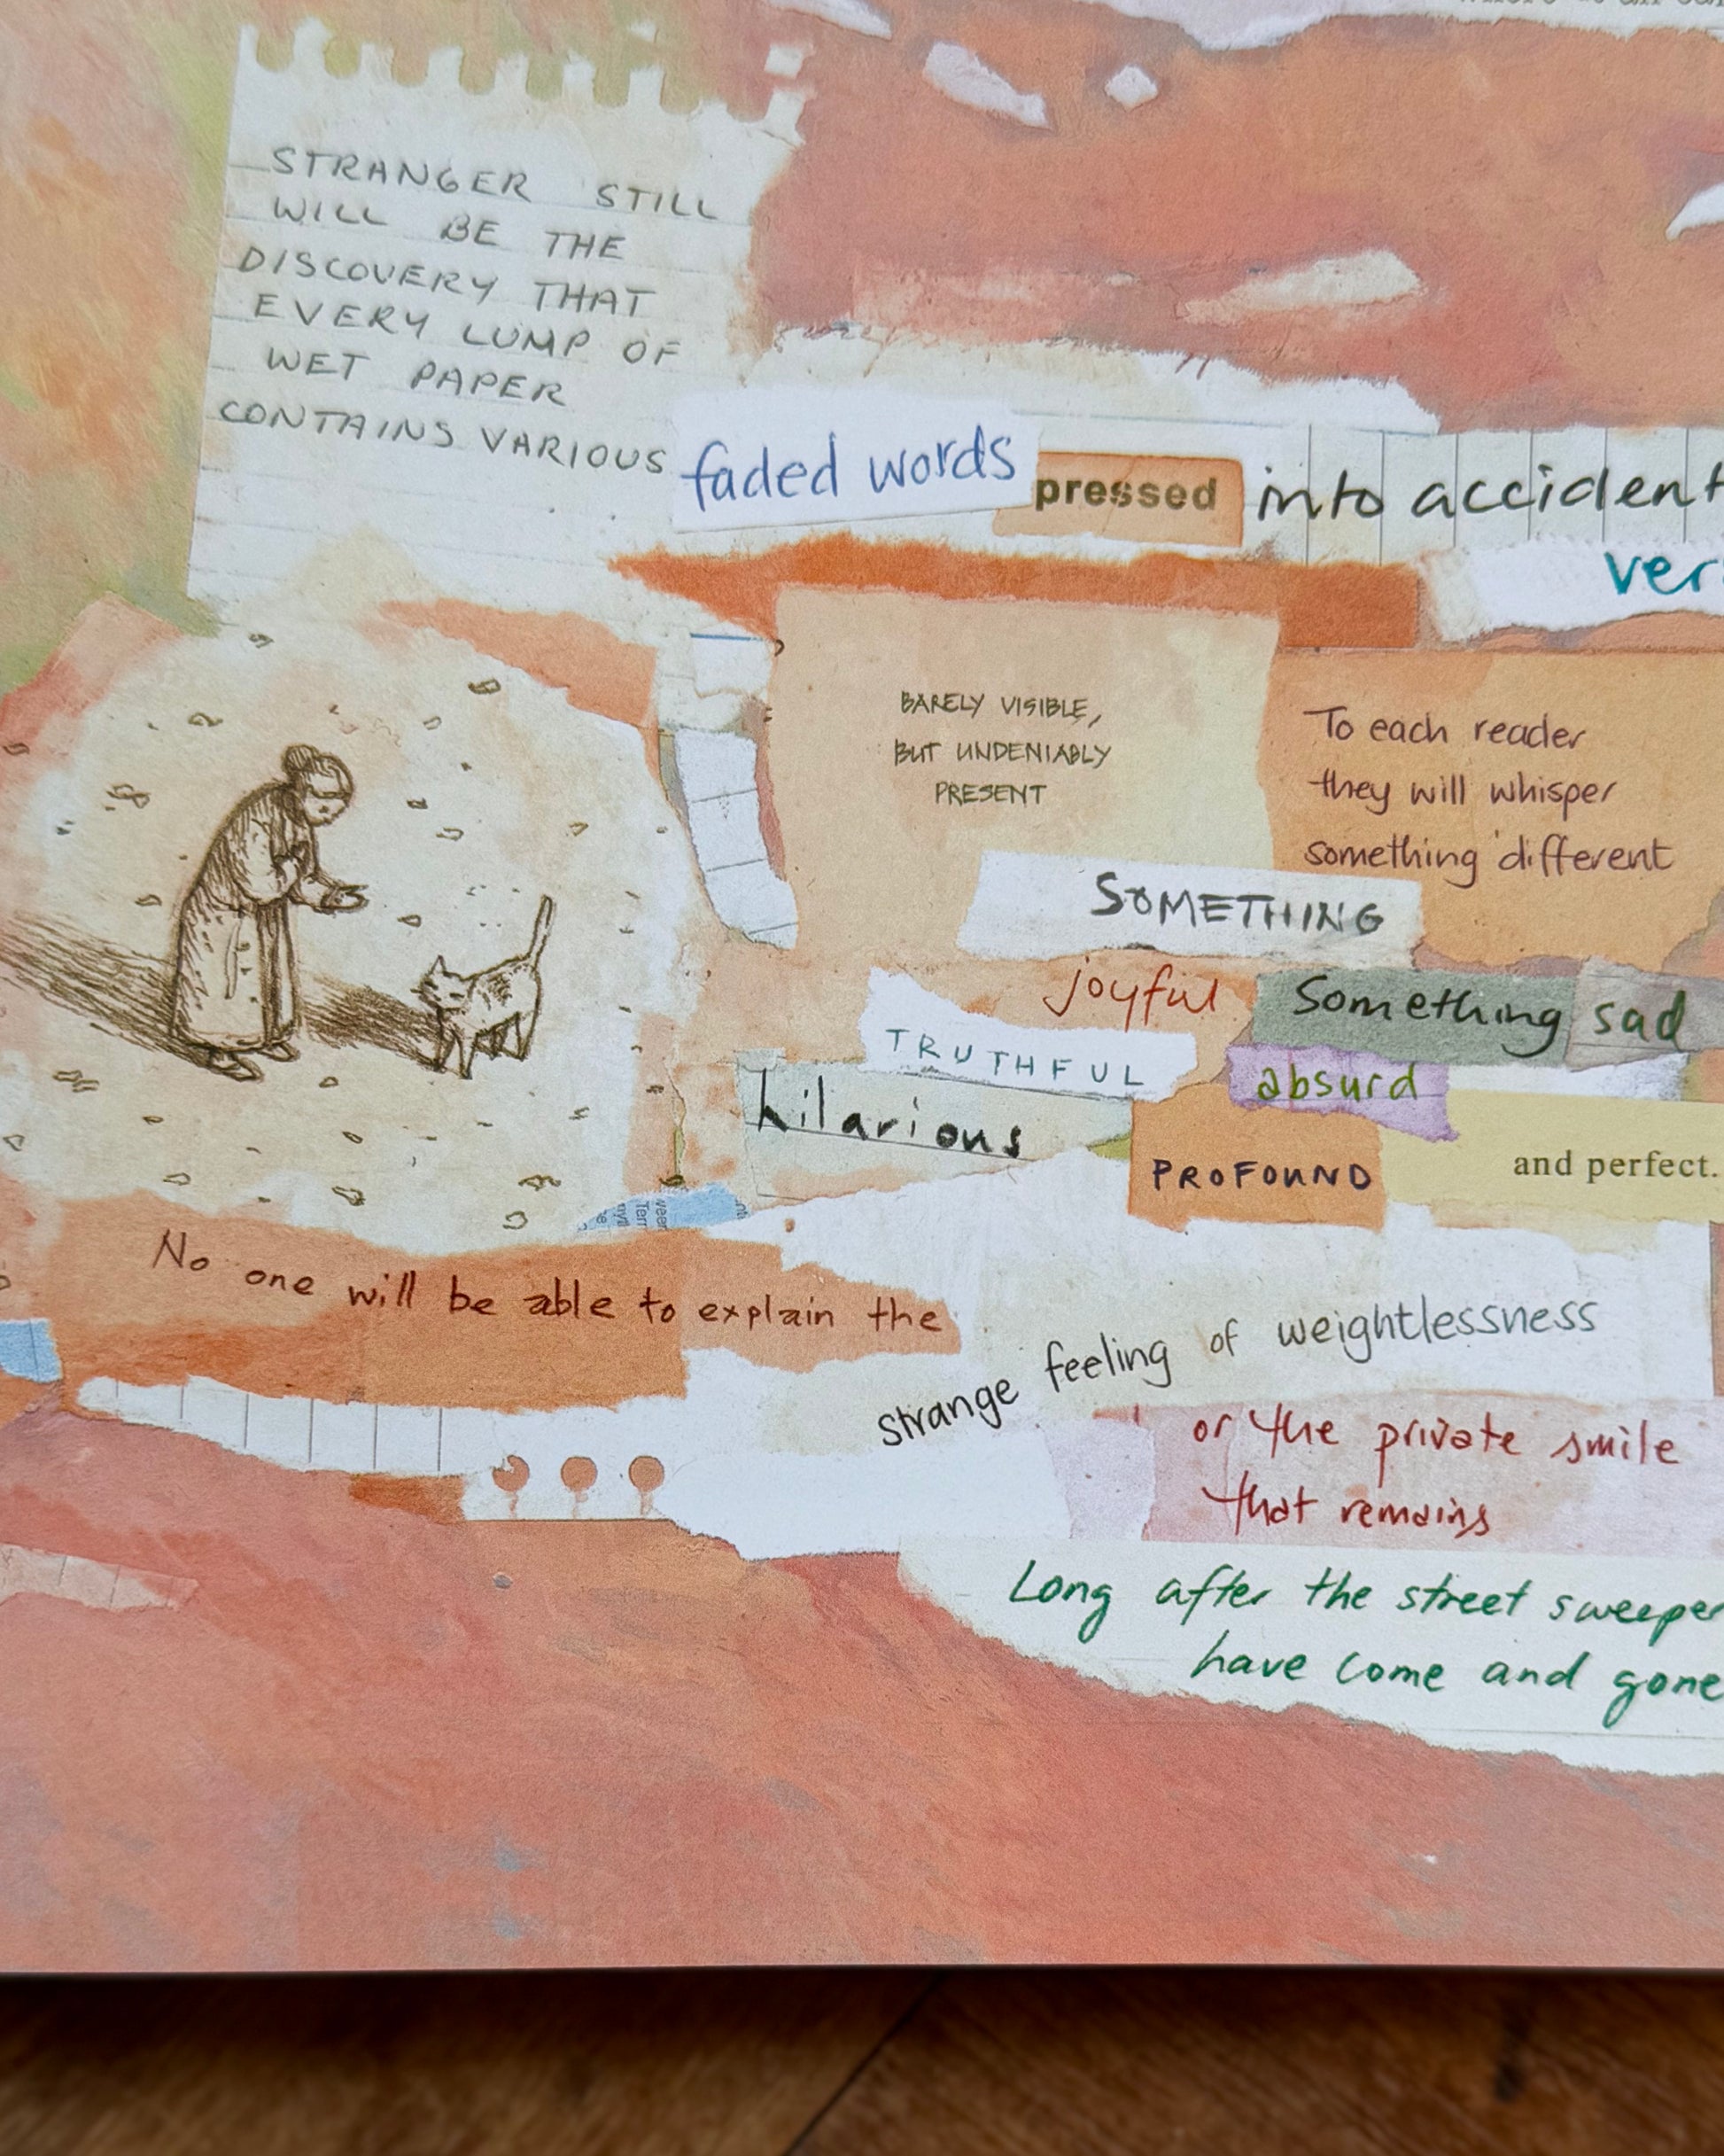 STRANGER STILL
WILL BE THE
DISCOVERY THAT
EVERY LUMP OF
WET PAPER
CONTAINS VARIOUS
faded words pressed into accident
ver
BARELY VISIBLE,
BUT UNDENIABLY
PRESENT
To each reader
they will whisper
something different
SOMETHING
joyful Something sad
TRUTHFUL absurd
hilarious PROFOUND and perfect.
No one will be able to explain the
strange feeling of weightlessness
or the private smile
that remains
Long after the street sweeper
have come and gone